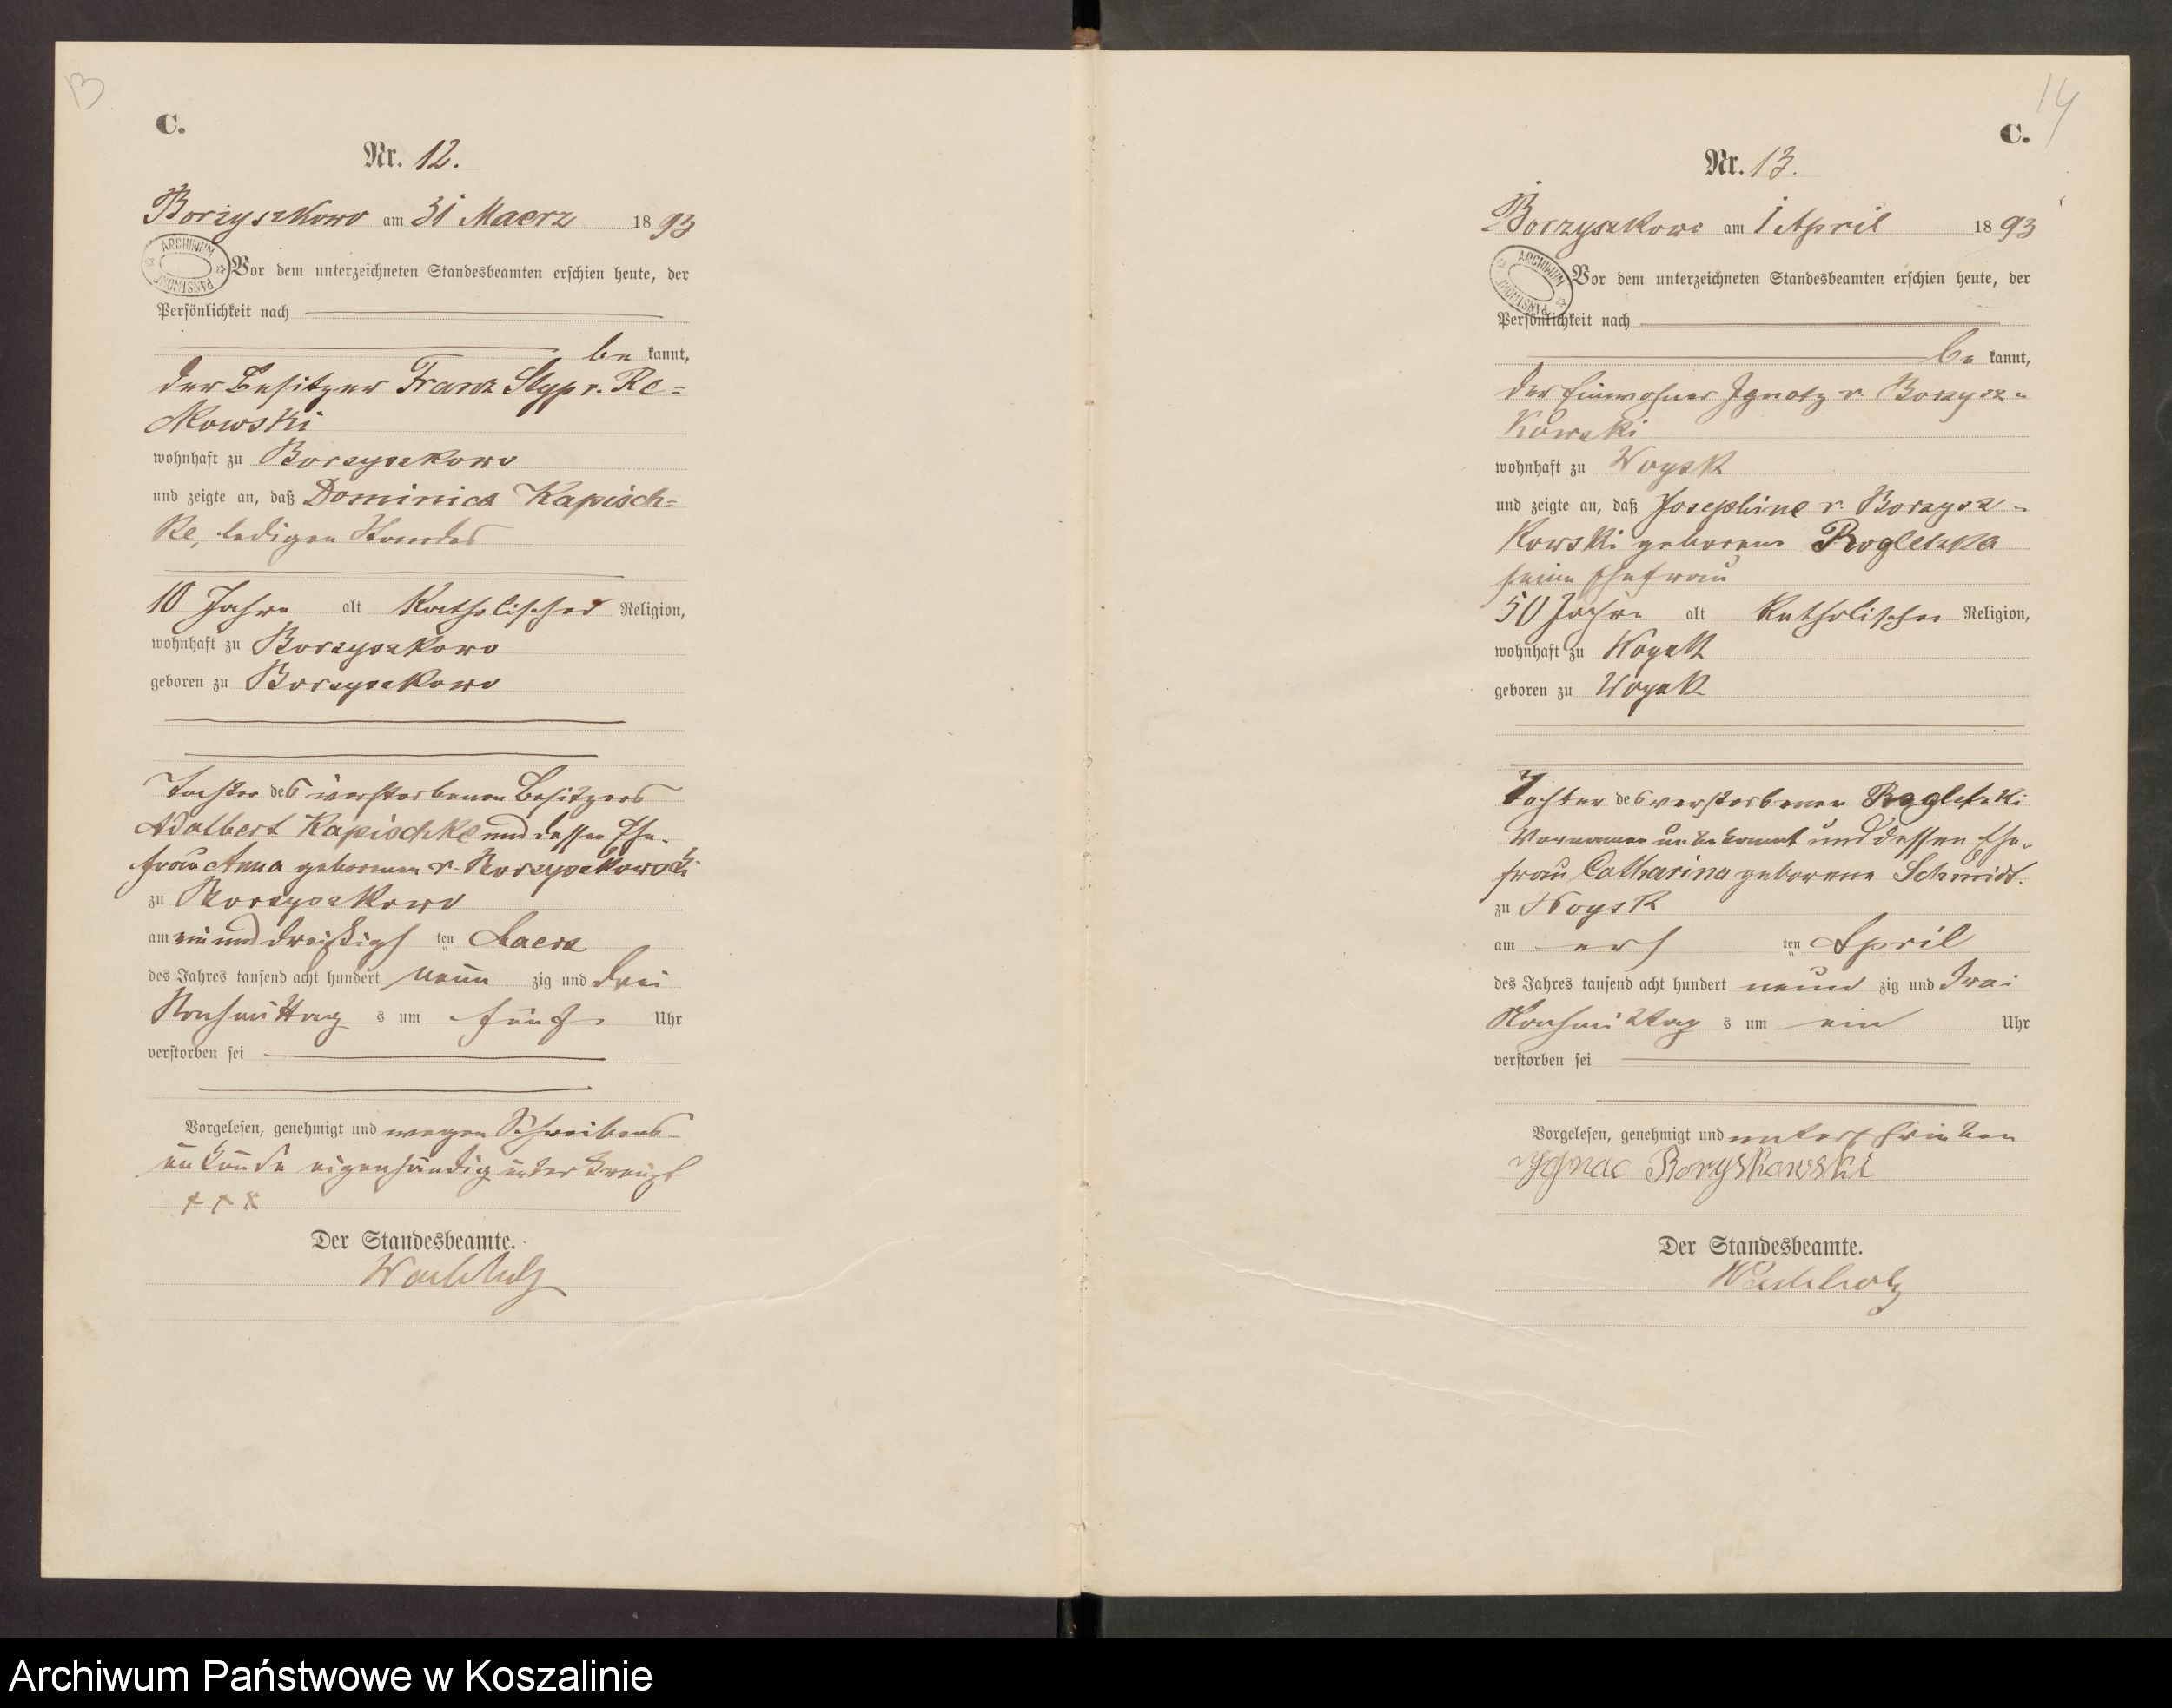 13
C.
Nr. 12.
Borzyszkowo am 31 Maerz 1893
ARCHIWUM PAŃSTWOWE
Vor dem unterzeichneten Standesbeamten erschien heute, der
Persönlichkeit nach
be kannt,
der Besitzer Franz Styp v. Re=
kowski
wohnhaft zu Borzyszkowo
und zeigte an, daß Dominica Kapisch=
ke, ledigen Standes
10 Jahre alt Katholischer Religion,
wohnhaft zu Borzyszkowo
geboren zu Borzyszkowo
Tochter des verstorbenen Besitzers
Adalbert Kapischke und dessen Ehe-
frau Anna geborenen v. Borzyszkowski
zu Borzyszkowo
am ein und dreißigsten Maerz
des Jahres tausend acht hundert neun zig und drei
Nachmittags um fünf Uhr
verstorben sei
Vorgelesen, genehmigt und wegen Schreibens-
unkunde eigenhändig unterkreuzt
+ + +
Der Standesbeamte.
Wachholz
14
C.
Nr. 13.
Borzyszkowo am 1 April 1893
ARCHIWUM PAŃSTWOWE
Vor dem unterzeichneten Standesbeamten erschien heute, der
Persönlichkeit nach
be kannt,
der Einwohner Ignatz v. Borzysz-
kowski
wohnhaft zu Woysk
und zeigte an, daß Josephine v. Borzysz-
kowski geborene
seine Ehefrau
50 Jahre alt Katholischer Religion,
wohnhaft zu Woysk
geboren zu Woysk
Tochter des verstorbenen
Vornamen unbekannt und dessen Ehe-
frau Catharina geborene Schmidt.
zu Woysk
am ersten April
des Jahres tausend acht hundert neun zig und drei
Nachmittags um ein Uhr
verstorben sei
Vorgelesen, genehmigt und unterschrieben
Ignac Boryskowski
Der Standesbeamte.
Wachholz
Archiwum Państwowe w Koszalinie